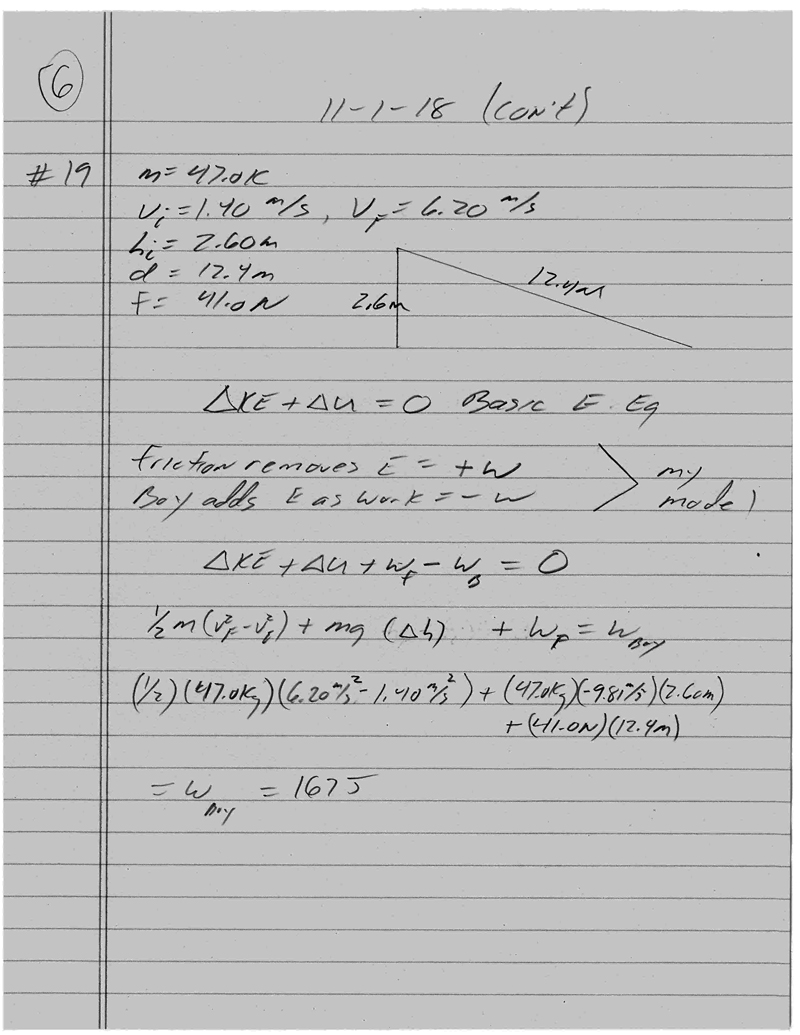 6
11-1-18 (con't)
#19 m = 47.0K
Vi = 1.40 m/s, VF = 6.20 m/s
hi = 2.60m
d = 12.4m
F = 41.0N
2.6m
12.4m
ΔKE + ΔU = 0 Basic E. Eq
Friction removes E = +W
Boy adds E as work = -W
my
model
ΔKE + ΔU + WF - WB = 0
1/2 m (VF² - Vi²) + mg (Δh) + WF = WBoy
(1/2)(47.0Kg)(6.20 m/s² - 1.40 m/s²) + (47.0Kg)(-9.81 m/s)(2.60m)
+ (41.0N)(12.4m)
= WBoy = 167J